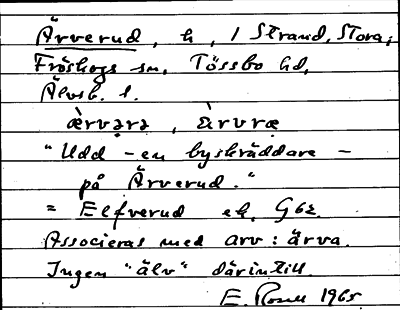 Ärverud, h, / Strand, Stora,
Fröskogs sn, Tössbo hd,
Älvsb. l.
ærvərə, ærvræ
"Udd – en byskräddare –
på Ärverud."
= Elfverud ek. Gbl.
Associeras med arv : ärva.
Ingen "älv" därintill.
E. Rosell 1965